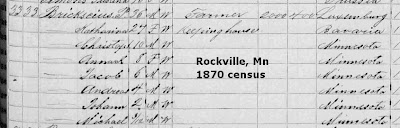 23 23 Brickseius P. 38 M W Farmer 2000 400 Luxemburg
Katharina 27 F W Keeping house Bavaria
Christoph 10 M W Minnesota
Annmark 8 F W Minnesota
Jacob 6 M W Minnesota
Andreas 4 M W Minnesota
Johann 2 M W Minnesota
Michael M W Minnesota
Rockville, Mn
1870 census